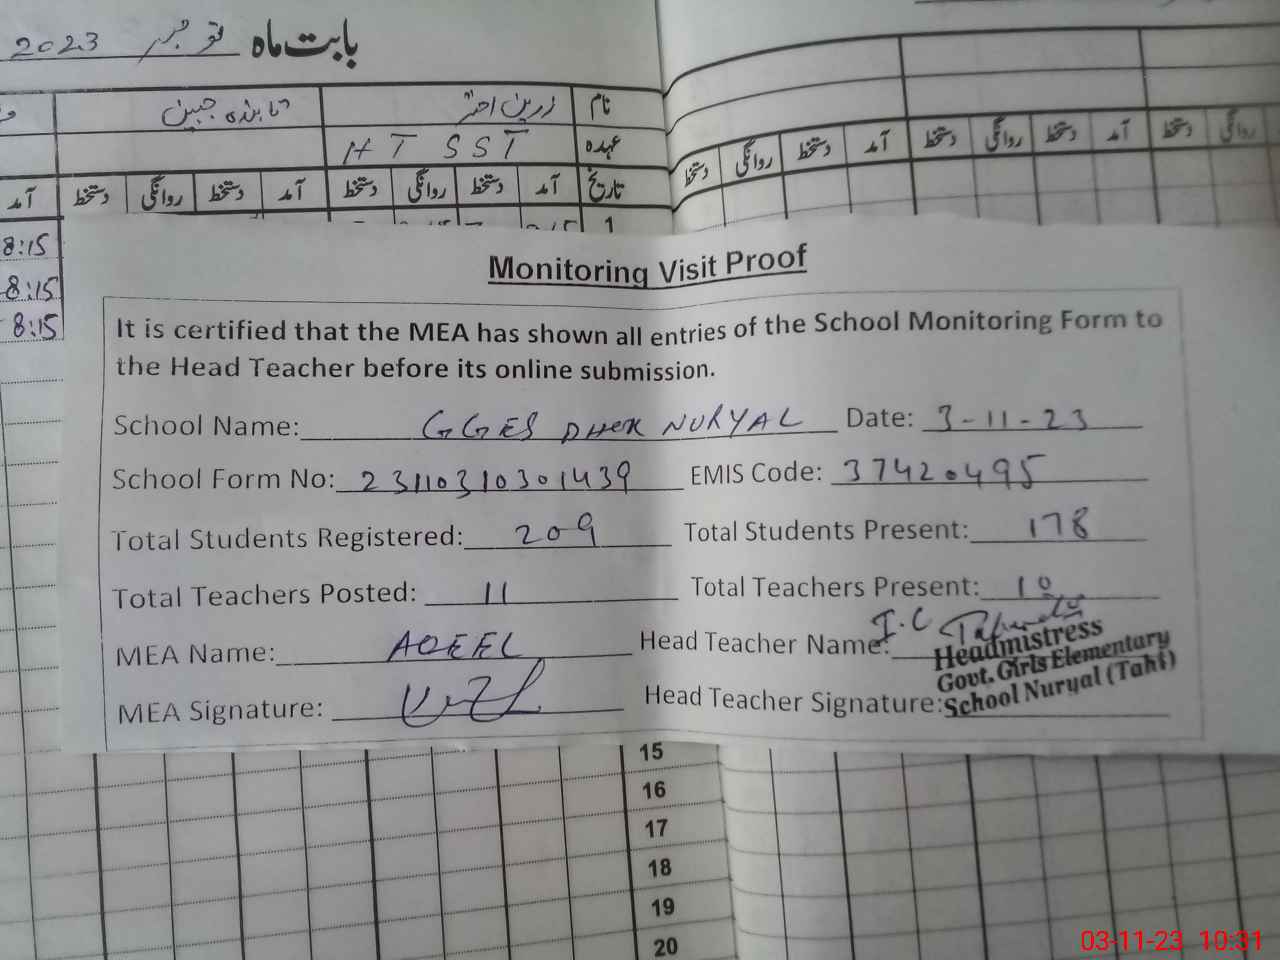 بابت ماہ نومبر 2023
نام زرین اختر تابندہ جبین
عہدہ HT SST
تاریخ آمد دستخط روانگی دستخط آمد دستخط روانگی دستخط آمد
دستخط روانگی دستخط آمد دستخط روانگی دستخط آمد دستخط روانگی
1
8:15
8:15
8:15
Monitoring Visit Proof
It is certified that the MEA has shown all entries of the School Monitoring Form to
the Head Teacher before its online submission.
School Name: GGES DHOK NURYAL Date: 3-11-23
School Form No: 23110310301439 EMIS Code: 37420495
Total Students Registered: 209 Total Students Present: 178
Total Teachers Posted: 11 Total Teachers Present: 10
MEA Name: AQEEL Head Teacher Name: I.C
Headmistress
Govt. Girls Elementary
MEA Signature: Head Teacher Signature: School Nuryal (Takt)
15
16
17
18
19
20
03-11-23 10:31